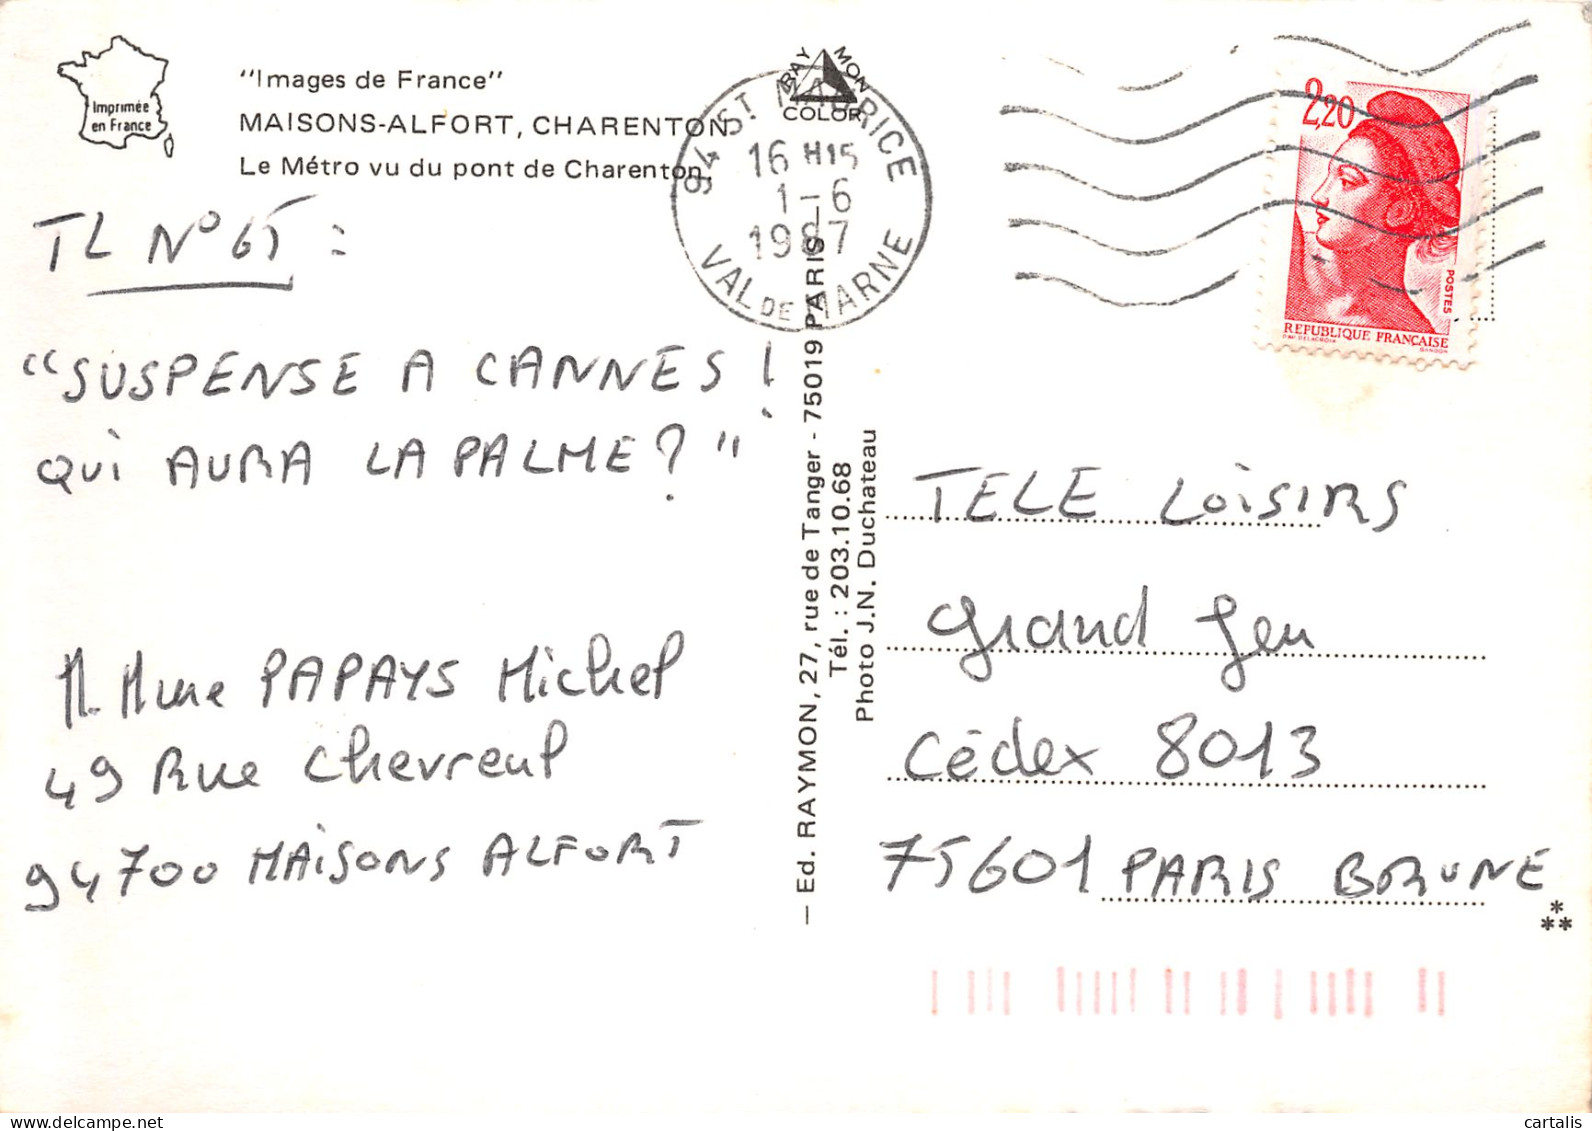 Imprimée
en France
"Images de France"
MAISONS-ALFORT, CHARENTON.
Le Métro vu du pont de Charenton.
RAYMON
COLOR
94 ST MAURICE
16 H15
1-6
1987
VAL DE MARNE
2,20
POSTES
REPUBLIQUE FRANCAISE
GANDON
TL N° 65 :
"SUSPENSE A CANNES !
QUI AURA LA PALME ? "
M. Mme PAPAYS Michel
49 Rue Chevreul
94700 MAISONS ALFORT
— Ed. RAYMON, 27, rue de Tanger - 75019 PARIS —
Tél. : 203.10.68
Photo J.N. Duchateau
TELE LOISIRS
Grand Jeu
Cédex 8013
75601 PARIS BRUNE
*
**
cartalis